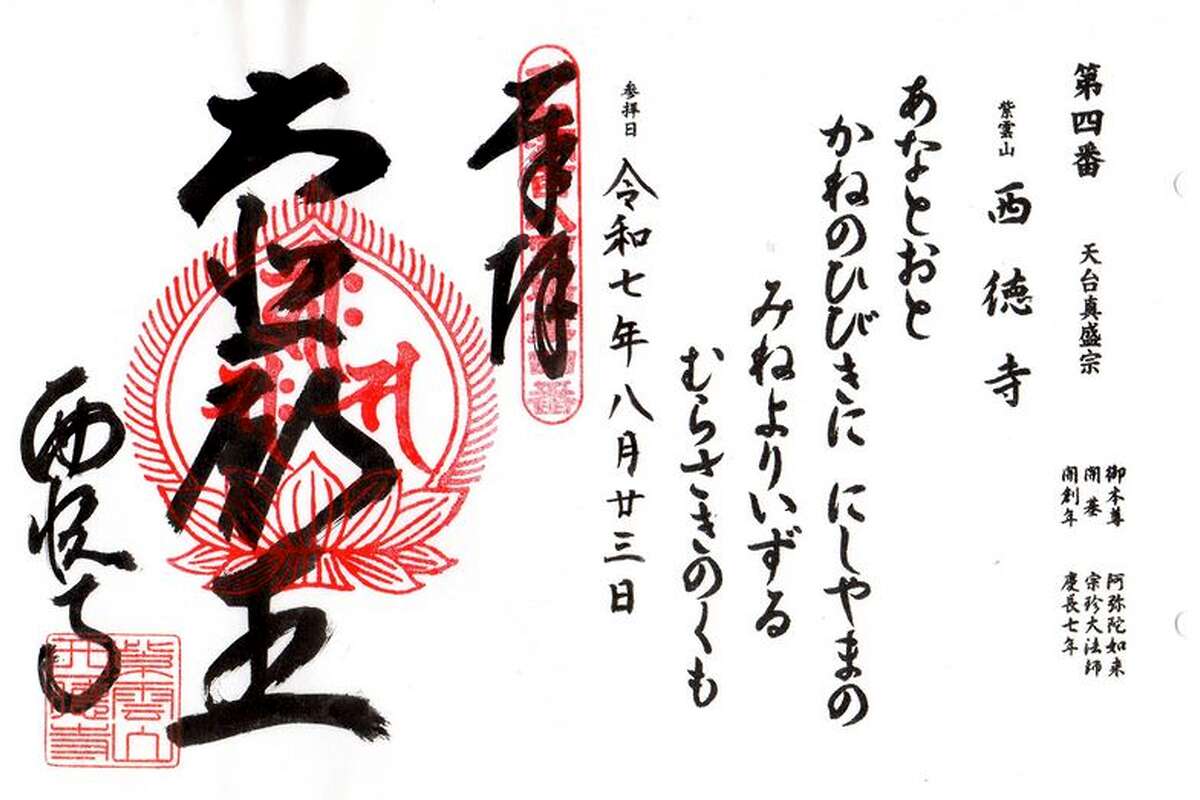 第四番 天台真盛宗
御本尊 阿弥陀如来
開基 宗珍大法師
開創年 慶長七年
紫雲山 西徳寺
あなとおと
かねのひびきに にしやまの
みねよりいずる
むらさきのくも
参拝日 令和七年八月廿三日
奉拝
王
西徳寺
紫雲山
西徳寺